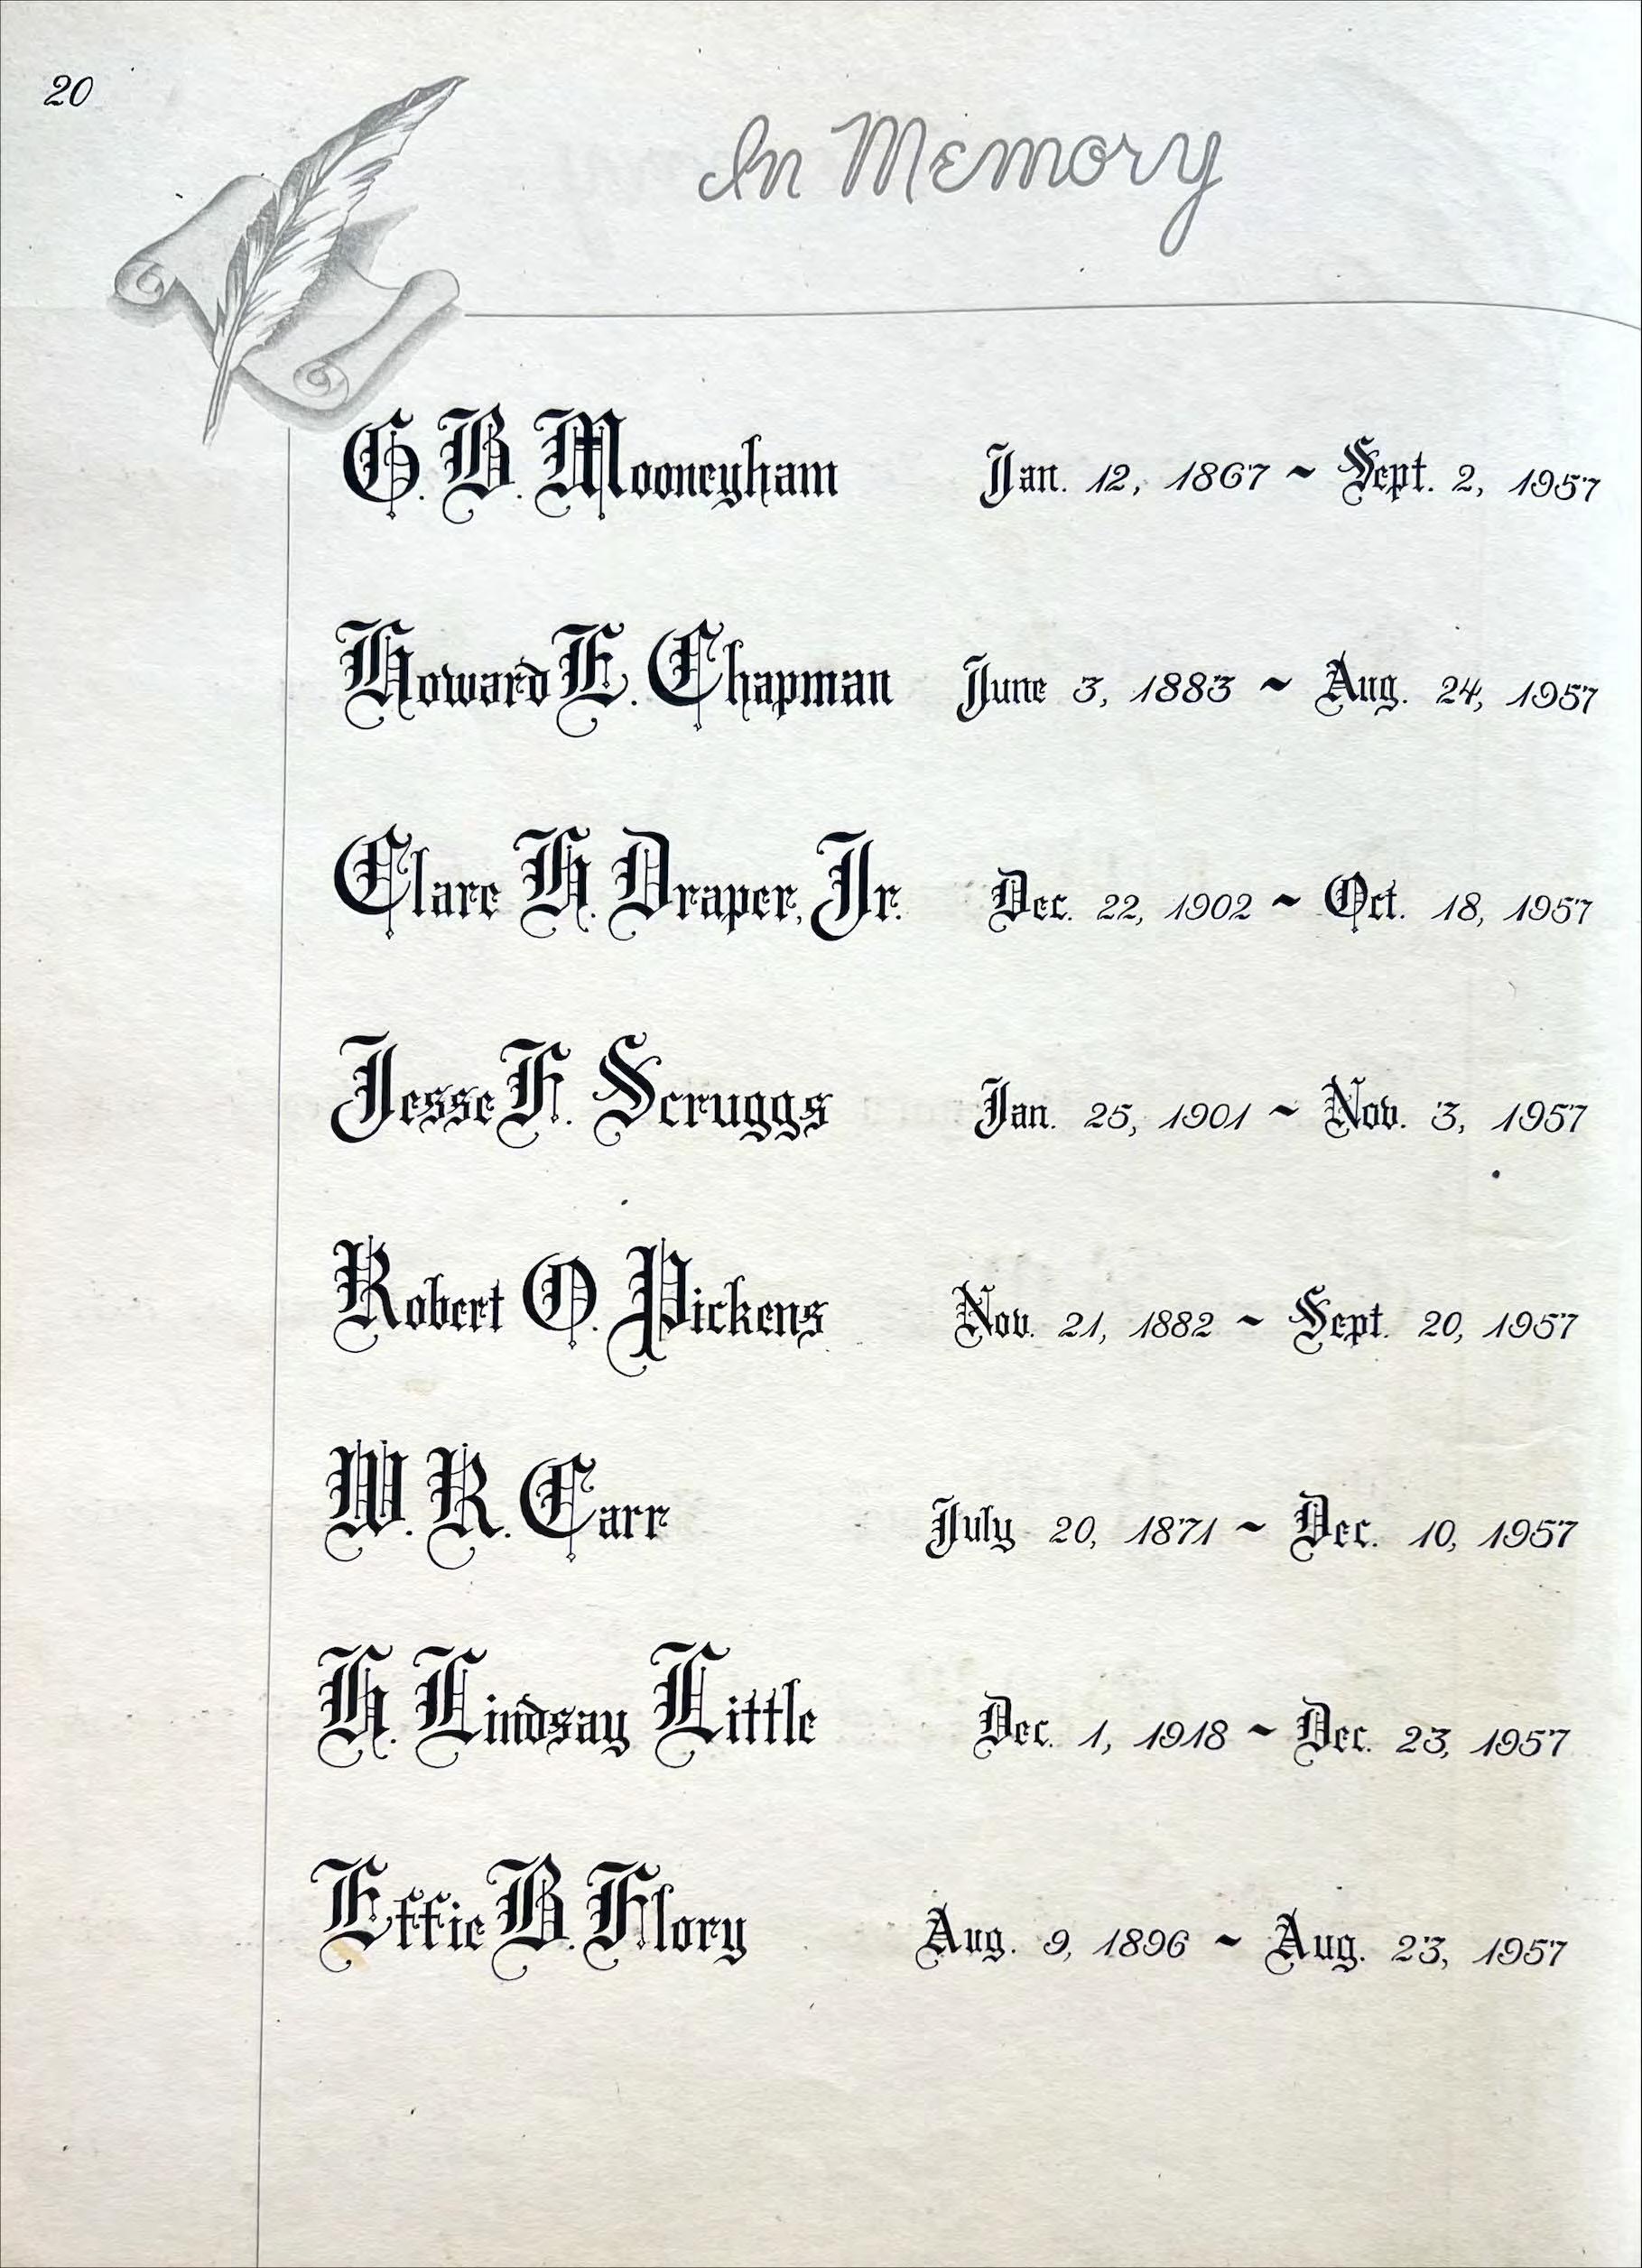 20
In Memory
G. B. Mooneyham Jan. 12, 1867 ~ Sept. 2, 1957
Howard E. Chapman June 3, 1883 ~ Aug. 24, 1957
Clare H. Draper, Jr. Dec. 22, 1902 ~ Oct. 18, 1957
Jesse F. Scruggs Jan. 25, 1901 ~ Nov. 3, 1957
Robert O. Pickens Nov. 21, 1882 ~ Sept. 20, 1957
W. R. Carr July 20, 1871 ~ Dec. 10, 1957
H. Lindsay Little Dec. 1, 1918 ~ Dec. 23, 1957
Effie B. Flory Aug. 9, 1896 ~ Aug. 23, 1957